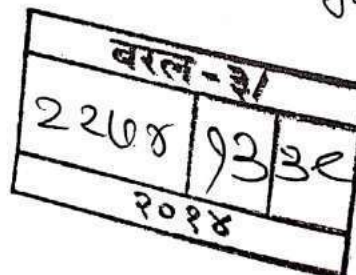 बरल - ३/
२२७४ १३ ३९
२०१४